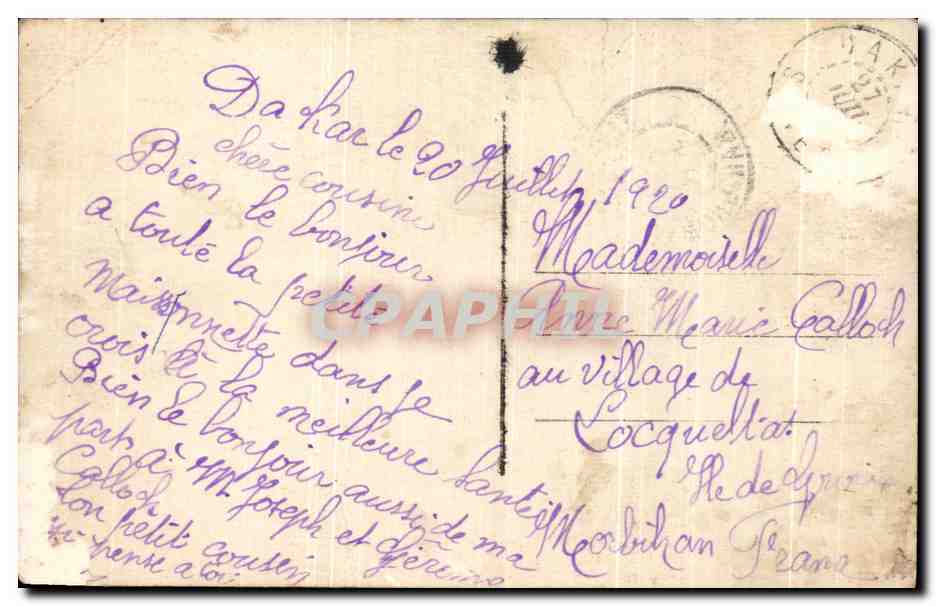 Dakar le 20 Juillet 1920
chère cousine
Bien le bonjour
a toute la petite
maisonnette dans je
crois à la meilleure santé
Bien le bonjour aussi de ma
part à Mr Joseph et
Calloch
ton petit cousin
qui pense a toi
Mademoiselle
Anne Marie Calloch
au village de
Locqueltas
Ile de
Morbihan France
DAK
27
CPARHIL